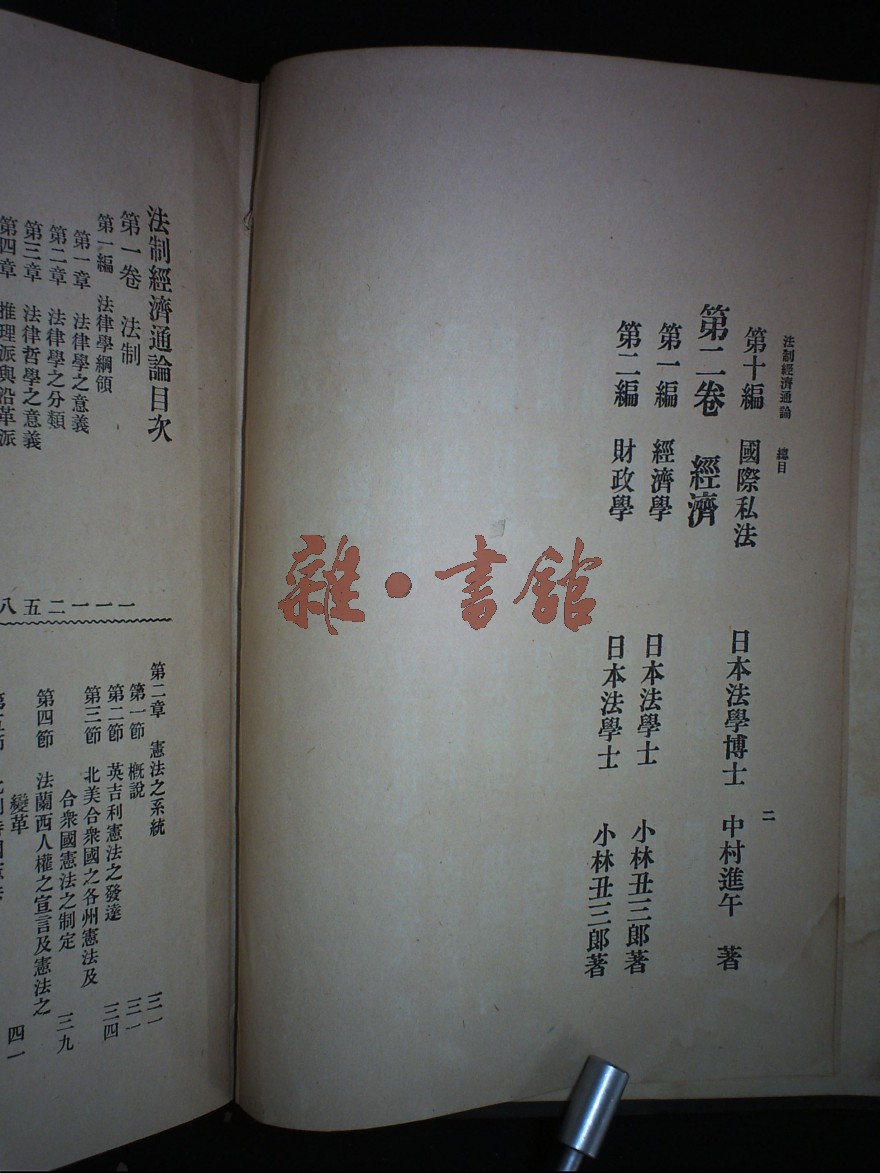 法制經濟通論 總目
二
第十編 國際私法 日本法學博士 中村進午 著
第二卷 經濟
第一編 經濟學 日本法學士 小林丑三郎著
第二編 財政學 日本法學士 小林丑三郎著
雜·書館
法制經濟通論目次
第一卷 法制
第一編 法律學綱領 一
第一章 法律學之意義 一
第二章 法律學之分類 二
第三章 法律哲學之意義 五
第四章 推理派與沿革派 八
第二章 憲法之系統 三一
第一節 概說 三一
第二節 英吉利憲法之發達 三四
第三節 北美合衆國之各州憲法及
合衆國憲法之制定 三九
第四節 法蘭西人權之宣言及憲法之
變革 四一